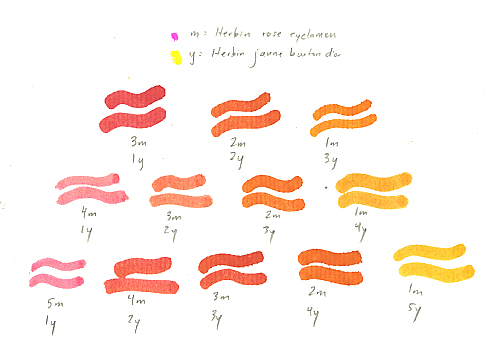 m = Herbin rose cyclamen
y = Herbin jaune bouton d'or
3m 2m 1m
1y 2y 3y
4m 3m 2m 1m
1y 2y 3y 4y
5m 4m 3m 2m 1m
1y 2y 3y 4y 5y